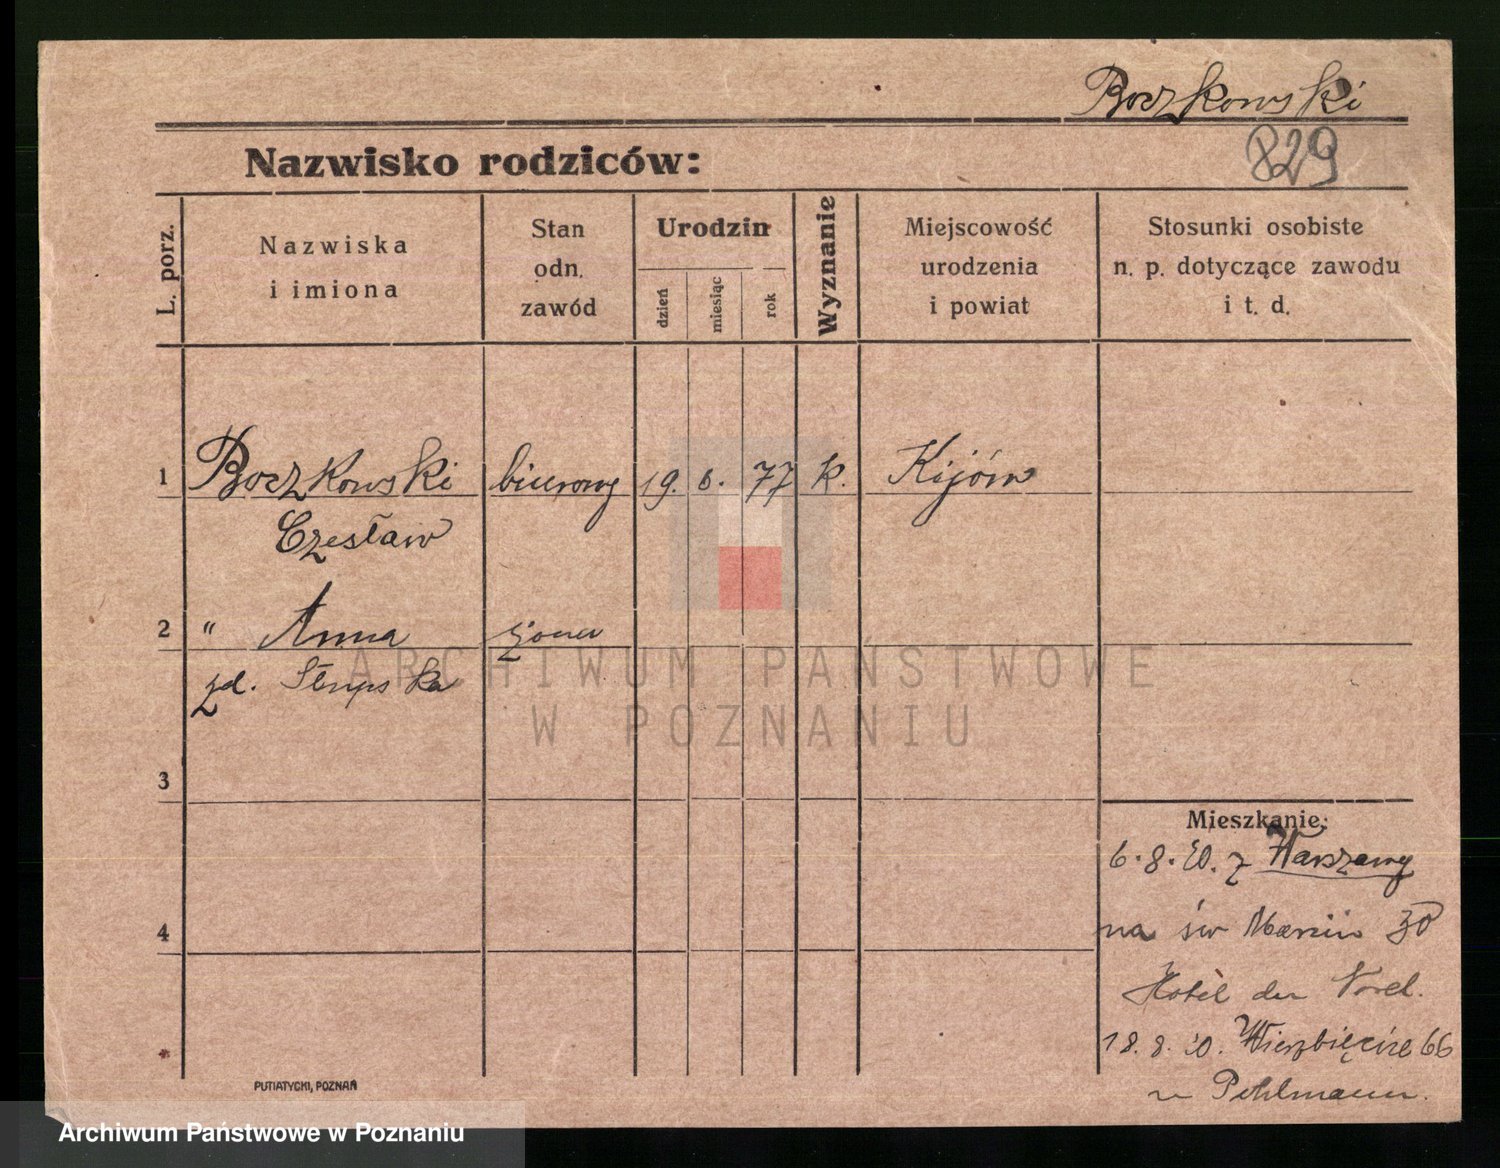 Boczkowski
829
Nazwisko rodziców:
L. porz.
Nazwiska
i imiona
Stan
odn.
zawód
Urodzin
dzień
miesiąc
rok
Wyznanie
Miejscowość
urodzenia
i powiat
Stosunki osobiste
n. p. dotyczące zawodu
i t. d.
1 Boczkowski biurowy 19. 6. 77 k. Kijów
Czesław
2 " Anna żona
zd.
ARCHIWUM PAŃSTWOWE
W POZNANIU
3
Mieszkanie:
6.8.20. z Warszawy
4
na św Marcin 30
Hotel du Nord.
18.8.20. Wierzbięcice 66
u Pohlmann.
PUTIATYCKI, POZNAŃ
Archiwum Państwowe w Poznaniu